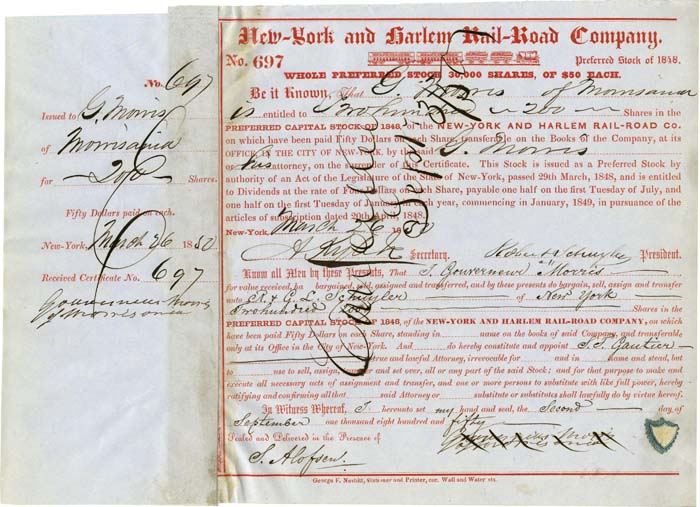 No. 697
Issued to G. Morris
of Morrisania
for 200 Shares.
Fifty Dollars paid on each.
New-York, March 26 1850
Received Certificate No. 697
Gouverneur Morris
of Morrisania
New-York and Harlem Rail-Road Company.
No. 697 Preferred Stock of 1848.
WHOLE PREFERRED STOCK 30,000 SHARES, OF $50 EACH.
Be it Known, That G. Morris of Morrisania
is entitled to Two hundred 200 Shares in the
PREFERRED CAPITAL STOCK OF 1848, OF THE NEW-YORK AND HARLEM RAIL-ROAD CO.
on which have been paid Fifty Dollars on each Share, transferable on the Books of the Company, at its
OFFICE IN THE CITY OF NEW-YORK, by the said G. Morris
or his Attorney, on the surrender of this Certificate. This Stock is issued as a Preferred Stock by
authority of an Act of the Legislature of the State of New-York, passed 29th March, 1848, and is entitled
to Dividends at the rate of Four Dollars on each Share, payable one half on the first Tuesday of July, and
one half on the first Tuesday of January in each year, commencing in January, 1849, in pursuance of the
articles of subscription dated 20th April, 1848.
New-York, March 26 1850
Secretary. Robert Schuyler President.
Know all Men by these Presents, That I, Gouverneur Morris
for value received, have bargained, sold, assigned and transferred, and by these presents do bargain, sell, assign and transfer
unto R. & G. L. Schuyler of New York
Two hundred 200 Shares in the
PREFERRED CAPITAL STOCK OF 1848, OF THE NEW-YORK AND HARLEM RAIL-ROAD COMPANY, on which
have been paid Fifty Dollars on each Share, standing in name on the books of said Company, and transferable
only at its Office in the City of New-York. And do hereby constitute and appoint J. C. Gautier
true and lawful Attorney, irrevocable for and in name and stead, but
to use to sell, assign, transfer and set over, all or any part of the said Stock; and for that purpose to make and
execute all necessary acts of assignment and transfer, and one or more persons to substitute with like full power, hereby
ratifying and confirming all that said Attorney or substitute or substitutes shall lawfully do by virtue hereof.
In Witness Whereof, I hereunto set my hand and seal, the Second day of
September one thousand eight hundred and fifty
Sealed and Delivered in the Presence of Gouverneur Morris
of Morrisania
S. Alofsen.
George F. Nesbitt, Stationer and Printer, cor. Wall and Water sts.
Cancelled
Sept 3/50